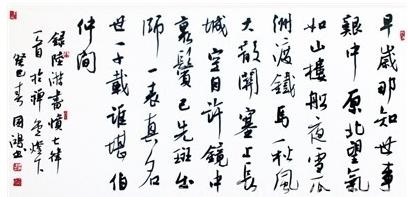 早歲那知世事
艱中原北望氣
如山樓船夜雪瓜
洲渡鐵馬秋風
大散關塞上長
城空自許鏡中
衰鬢已先斑出
師一表真名
世千載誰堪伯
仲間
錄陸游書憤七律
一首於燈下
癸巳春國鴻書